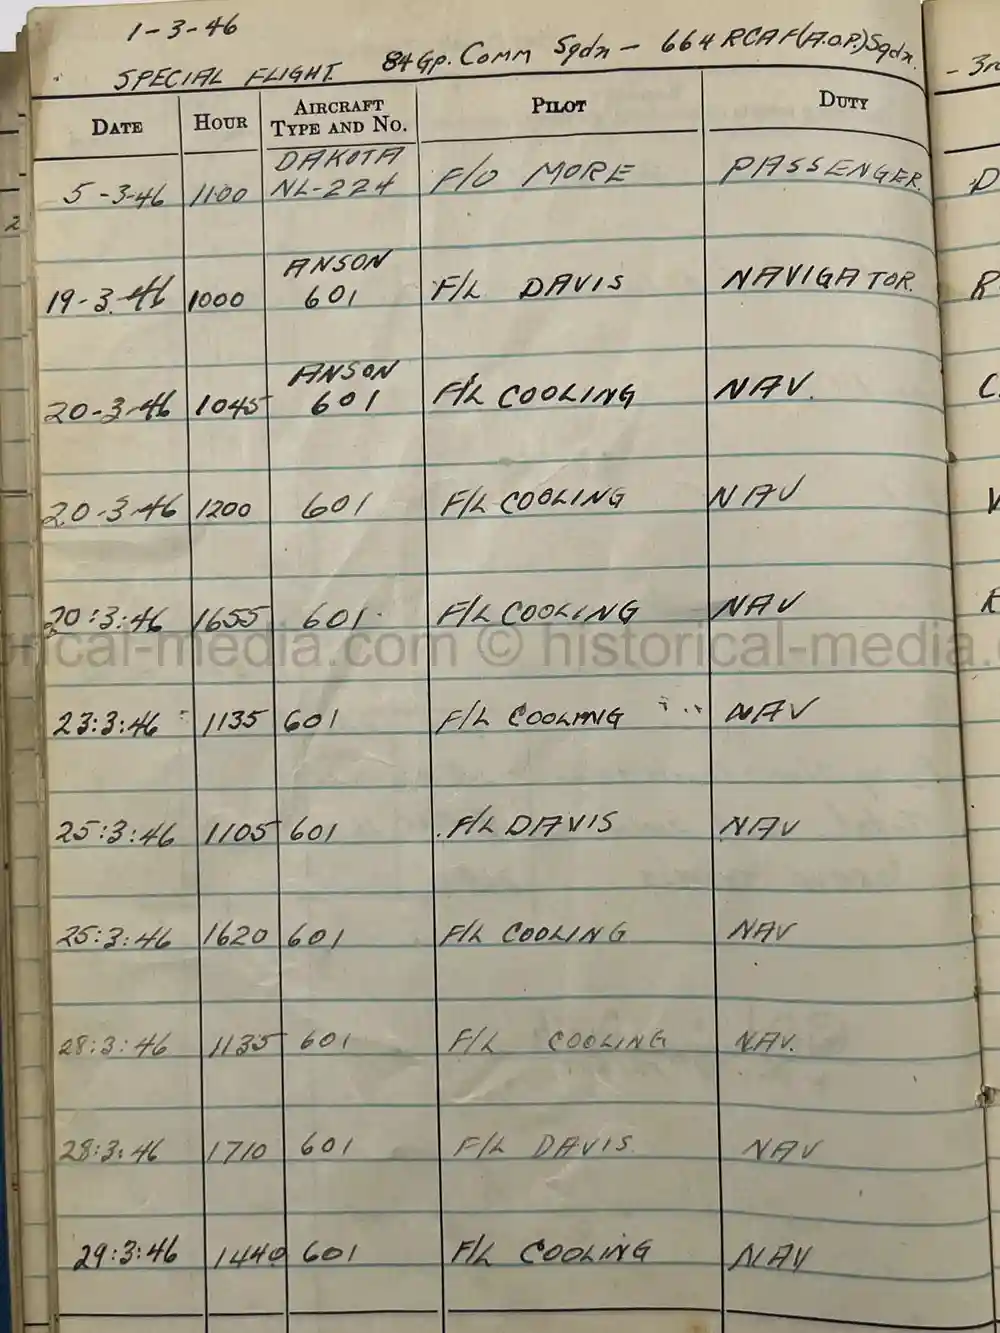 1-3-46
SPECIAL FLIGHT. 84 Gp. Comm Sqdn - 664 RCAF (A.O.P.) Sqdn.
DATE HOUR AIRCRAFT TYPE AND NO. PILOT DUTY
5-3-46 1100 DAKOTA NL-224 F/O MORE PASSENGER.
19-3-46 1000 ANSON 601 F/L DAVIS NAVIGATOR.
20-3-46 1045 ANSON 601 F/L COOLING NAV.
20-3-46 1200 601 F/L COOLING NAV
20:3:46 1655 601 F/L COOLING NAV
historical-media.com © historical-media.
23:3:46 1135 601 F/L COOLING NAV
25:3:46 1105 601 F/L DAVIS NAV
25:3:46 1620 601 F/L COOLING NAV
28:3:46 1135 601 F/L COOLING NAV.
28:3:46 1710 601 F/L DAVIS NAV
29:3:46 1440 601 F/L COOLING NAV